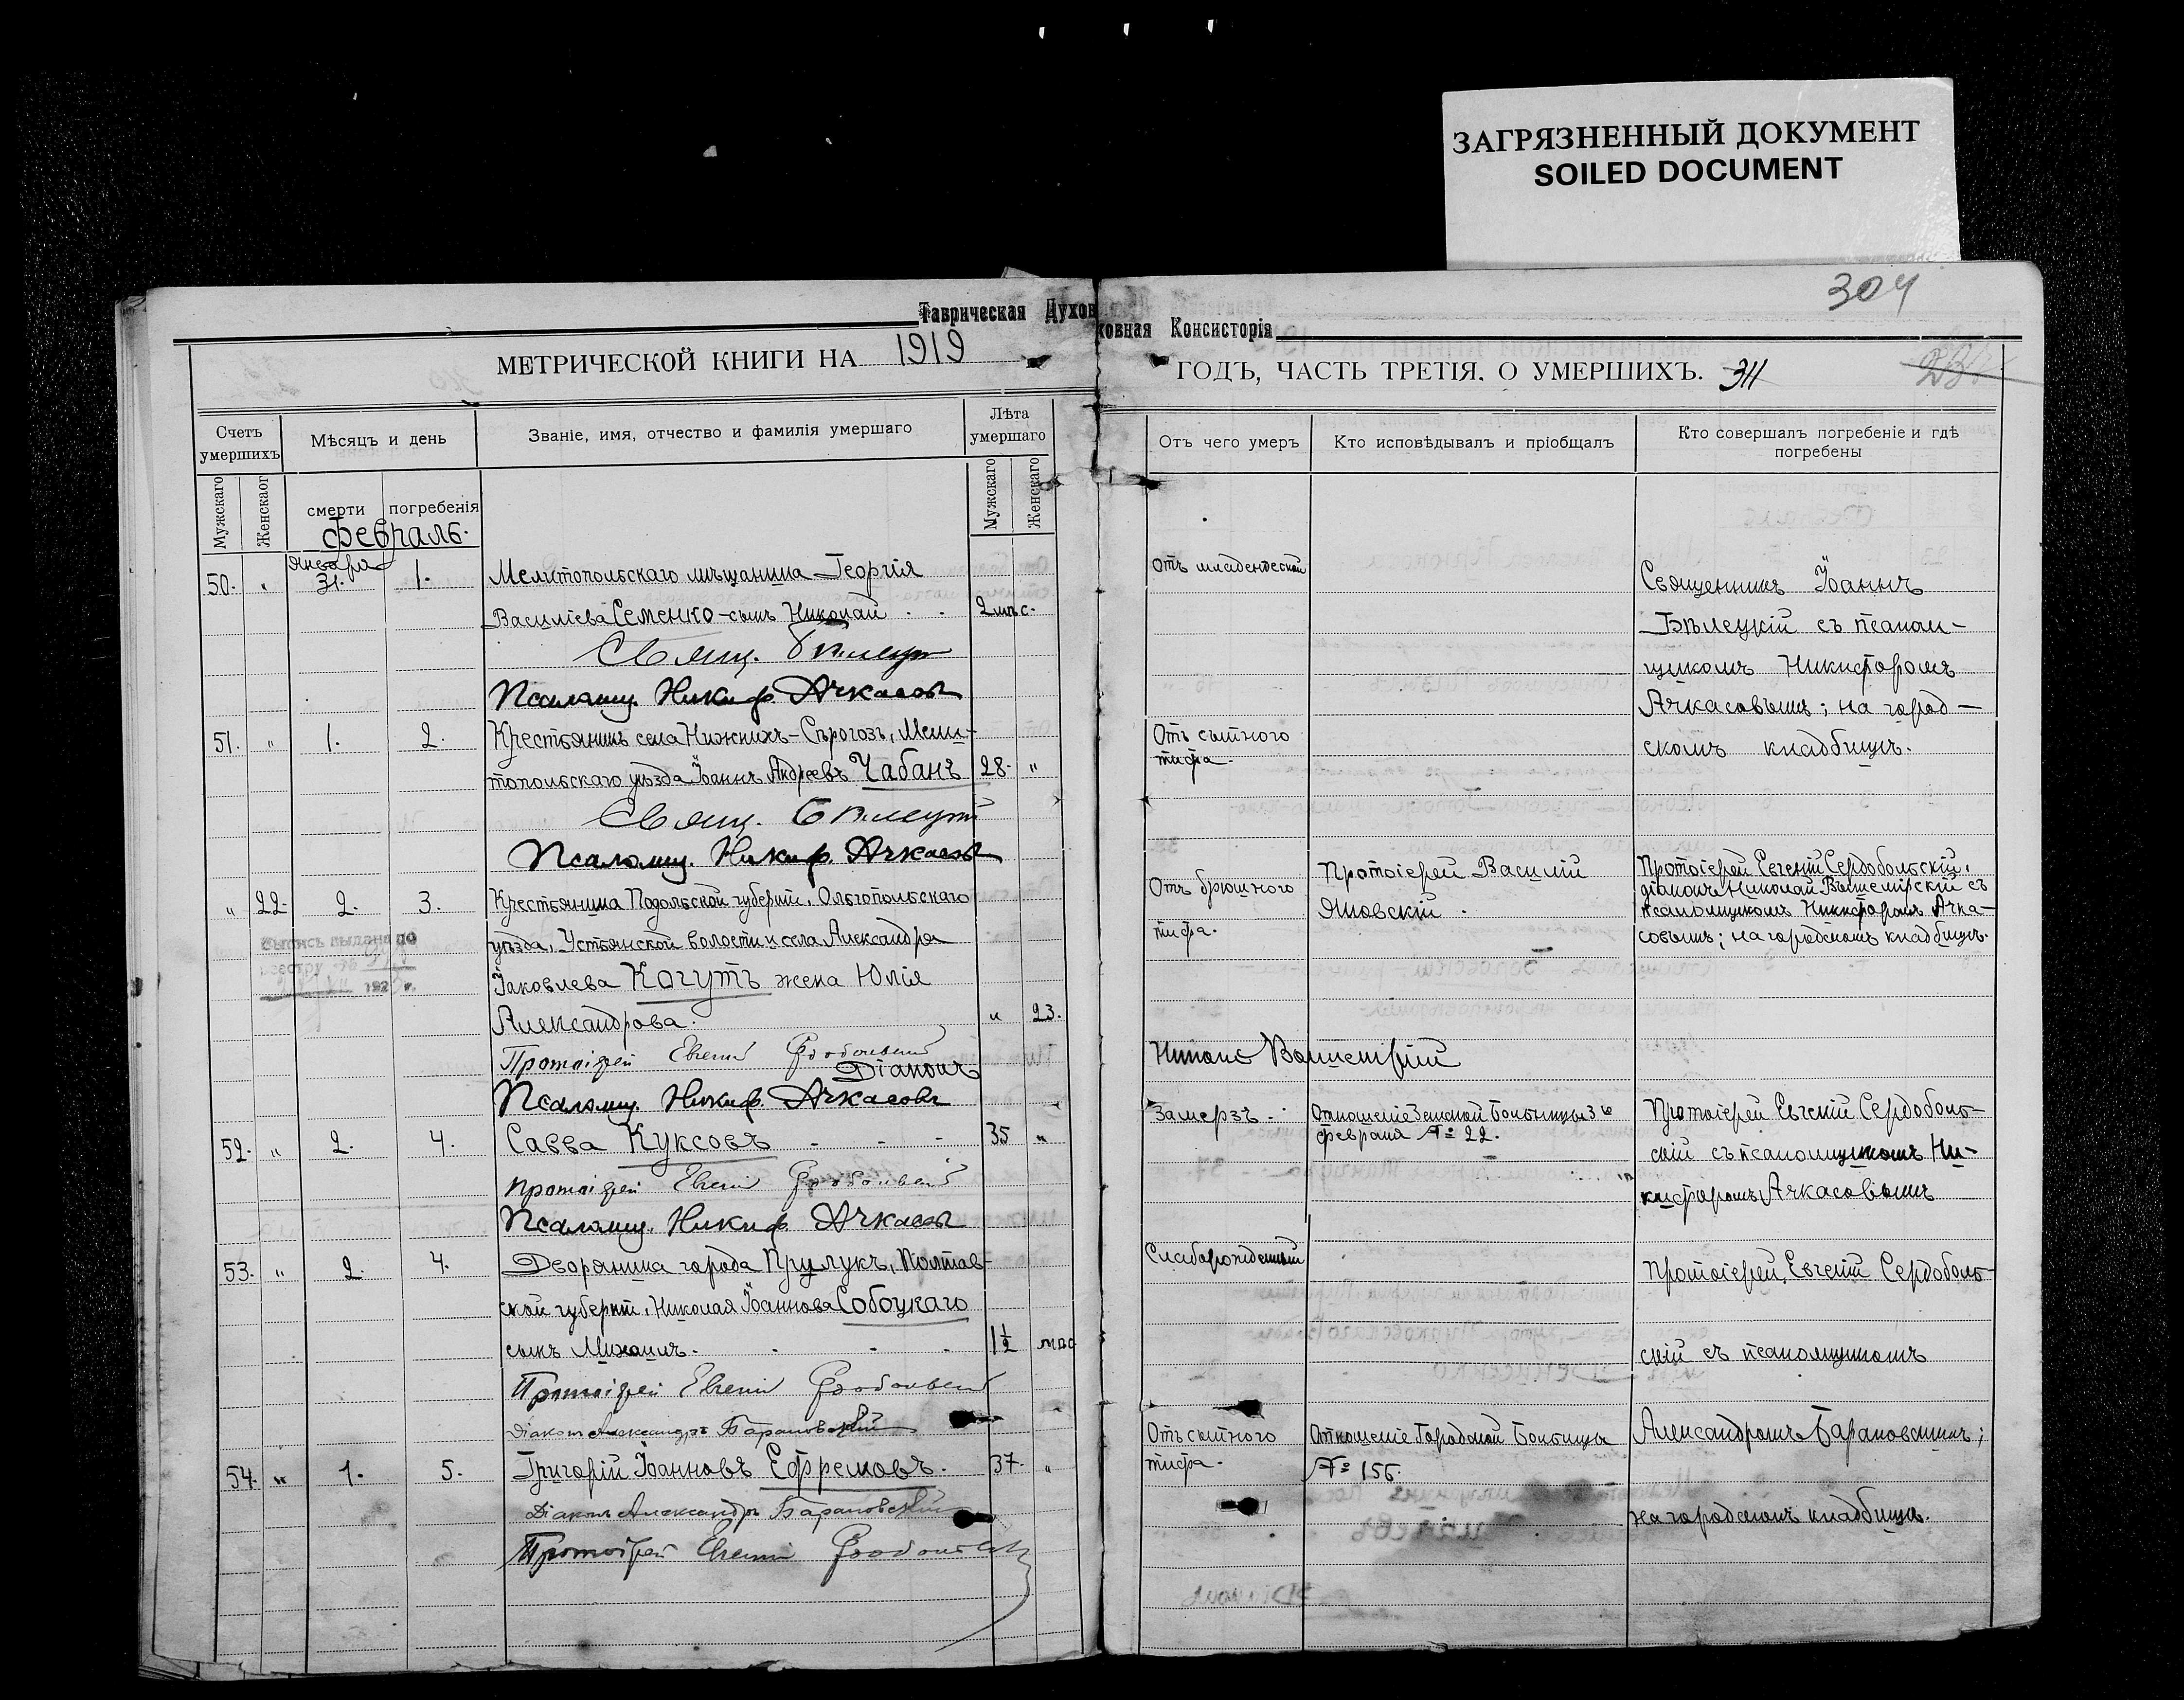 ЗАГРЯЗНЕННЫЙ ДОКУМЕНТ
SOILED DOCUMENT
304
Таврическая Духов
ховная Консисторія
МЕТРИЧЕСКОЙ КНИГИ НА 1919
ГОДЪ, ЧАСТЬ ТРЕТІЯ. О УМЕРШИХЪ. 311
Счетъ умершихъ
Мѣсяцъ и день
Званіе, имя, отчество и фамилія умершаго
Лѣта умершаго
Мужскаго
Женскаог
смерти
погребенія
Мужскаго
Женскаго
Отъ чего умеръ
Кто исповѣдывалъ и пріобщалъ
Кто совершалъ погребеніе и гдѣ
погребены
Февраль.
50. " Января 31. 1. Мелитопольскаго мѣщанина Георгія
Василіева Семенко - сынъ Николай . . 2 мѣс.
Свящ. Бѣлецкій
Псаломщ. Никиф. Ачкасовъ
Отъ младенческой
Священникъ Іоаннъ
Бѣлецкій съ псалом-
щикомъ Никифоромъ
Ачкасовымъ; на город-
скомъ кладбищѣ.
51. " 1. 2. Крестьянинъ села Нижнихъ-Сѣрогозъ, Мели-
топольскаго уѣзда Іоаннъ Андреевъ Чабанъ 28. "
Свящ. Бѣлецкій
Псаломщ. Никиф. Ачкасовъ
Отъ сыпного
тифа.
" 22. 2. 3. Крестьянина Подольской губерніи, Ольгопольскаго
уѣзда, Устьянской волости и села Александра
Іаковлева Когутъ жена Юлія
Александрова. " 23.
Протоіерей Евгеній Сердобольскій
Діаконъ
Псаломщ. Никиф. Ачкасовъ
Выпись выдана по
реестру №
192 г.
Отъ брюшного
тифа.
Протоіерей Василій
Яновскій.
Протоіерей Евгеній Сердобольскій,
діаконъ Николай Вышемірскій съ
псаломщикомъ Никифоромъ Ачка-
совымъ; на городскомъ кладбищѣ.
52. " 2. 4. Савва Куксовъ - - - 35 "
Протоіерей Евгеній Сердобольскій
Псаломщ. Никиф. Ачкасовъ
Замерзъ.
Отношеніе Земской Больницы 3го
февраля № 22.
Протоіерей Евгеній Сердоболь-
скій съ псаломщикомъ Ни-
кифоромъ Ачкасовымъ
53. " 2. 4. Дворянина города Прилукъ, Полтав-
ской губерніи, Николая Іоаннова Собоцкаго
сынъ Михаилъ. . . . 1½ мѣс
Протоіерей Евгеній Сердобольскій
Діаконъ Александръ Барановскій
Слаборожденный
Протоіерей, Евгеній Сердоболь-
скій съ псаломщикомъ
Александромъ Барановскимъ;
на городскомъ кладбищѣ.
54. " 1. 5. Григорій Іоанновъ Ефремовъ. 37. "
Діаконъ Александръ Барановскій
Протоіерей Евгеній Сердобольскій
Отъ сыпного
тифа.
Отношеніе Городской Больницы
№ 156.